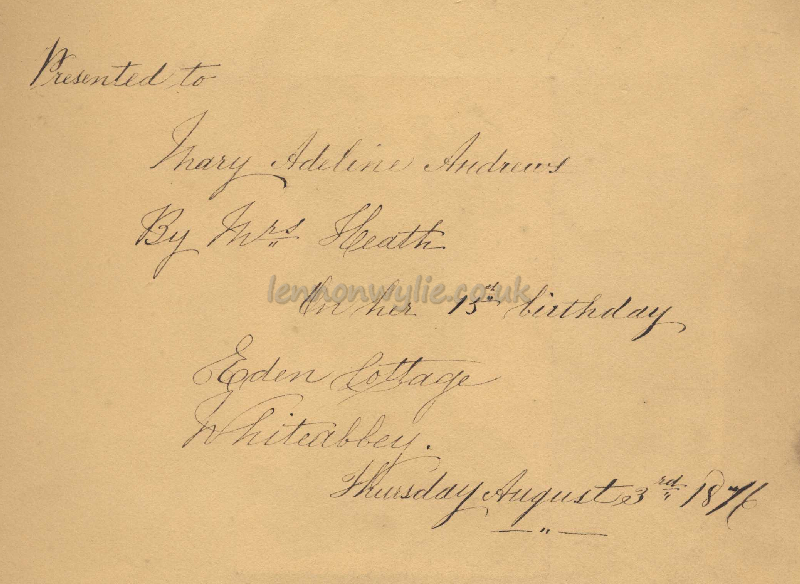 Presented to
Mary Adeline Andrews
By Mrs Heath
lennonwylie.co.uk
On her 15th birthday
Eden Cottage
Whiteabbey.
Thursday August 3rd 1876